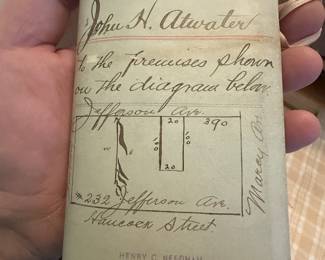 John H. Atwater
to the premises shown
on the diagram below.
Jefferson Ave.
20
390
100
100
20
Marcy Av.
#232 Jefferson Ave.
Hancock Street.
HENRY C. NEEDHAM